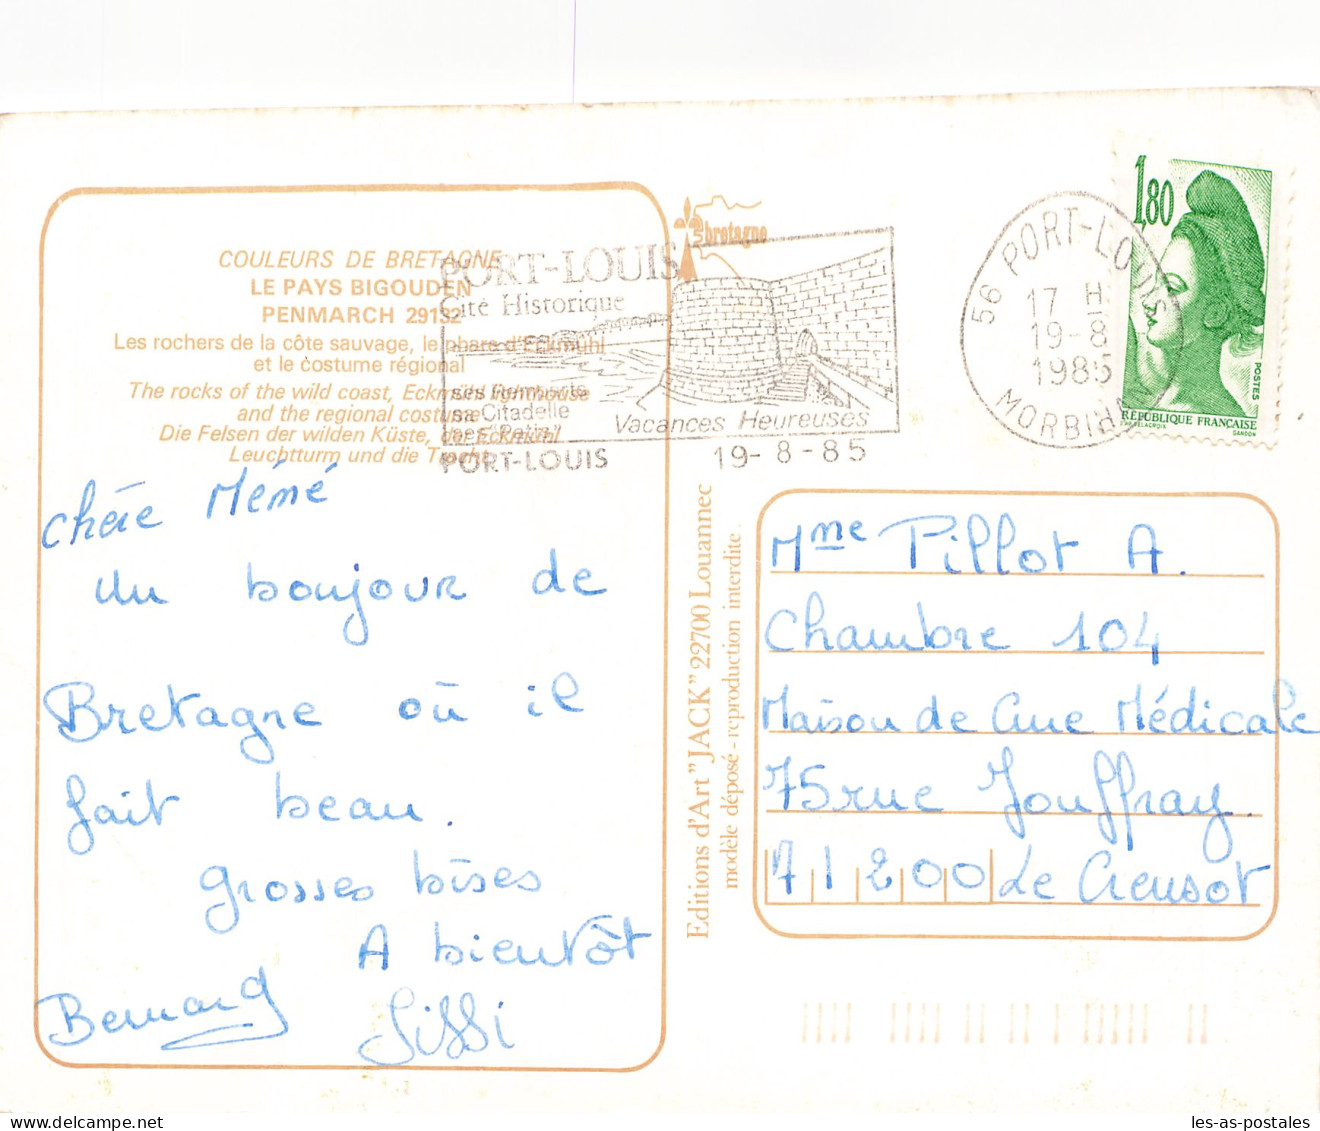 COULEURS DE BRETAGNE
LE PAYS BIGOUDEN
PENMARCH 29132
Les rochers de la côte sauvage, le phare d'Eckmühl
et le costume régional
The rocks of the wild coast, Eckmühl lighthouse
and the regional costume
Die Felsen der wilden Küste, der Eckmühl
Leuchtturm und die Tracht
chère Mémé
un bonjour de
Bretagne où il
fait beau.
grosses bises
A bientôt
Bernard
Sissi
bretagne
PORT-LOUIS
Cité Historique
ses Remparts
sa Citadelle
ses "Patis"
Vacances Heureuses
PORT-LOUIS
19-8-85
56 PORT-LOUIS
17 H
19-8
1985
MORBIHAN
1,80
POSTES
RÉPUBLIQUE FRANÇAISE
D'AP. DELACROIX
GANDON
Editions d'Art "JACK" 22700 Louannec
modèle déposé - reproduction interdite.
Mme Pillot A.
Chambre 104
Maison de Cure Médicale
75 rue Jouffray.
71200 Le Creusot
les-as-postales.com
les-as-postales